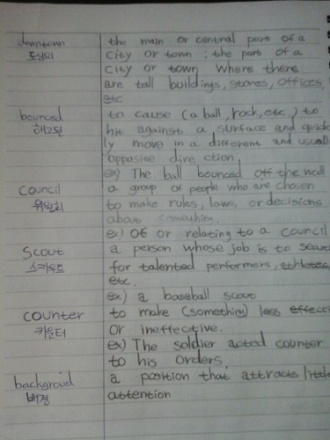 downtown the main or central part of a
도심의 city or town : the part of a
city or town where there
are tall buildings, stores, offices,
etc
bounced to cause (a ball, rock, etc.) to
해고된 hit against a surface and quick
ly move in a different and usually
opposise dire ction
ex) The ball bounced off the wall
council a group of people who are chosen
위원회 to make rules, laws, or decisions
about something.
ex) of or relating to a council
Scout a person whose job is to
스카우트 for talented performers, athletes
etc.
ex) a baseball scout
counter to make (something) less
카운터 or ineffective.
ex) The soldier acted counter
to his orders.
backgroud a position that attracts little
배경 attention